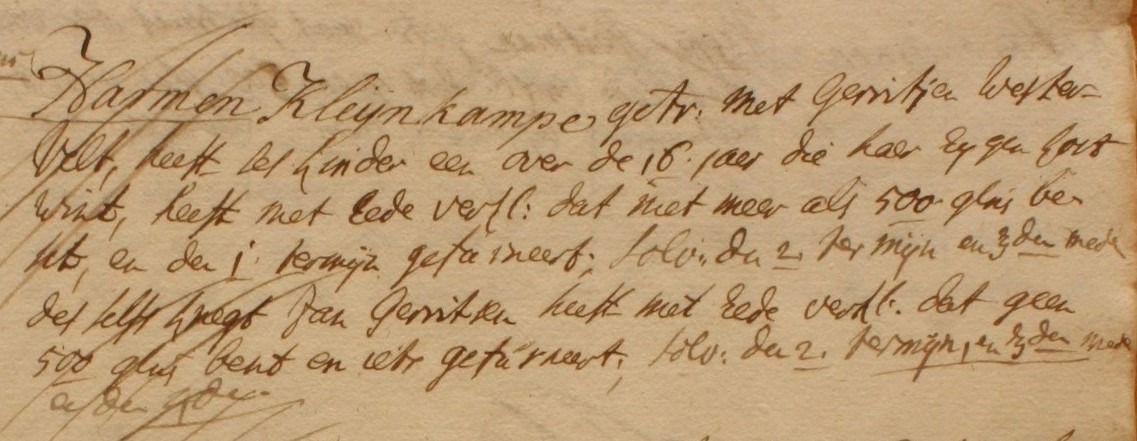 Harmen Kleijnkampe getr: met Gerritjen Wester=
velt, heeft ses kinder een over de 16. jaer die haer Eygen kost
wint, heeft met Eede verkl: dat niet meer als 500 glns be-
sit, en den 1. termijn gefurneert; solv: den 2. termijn en 3den mede
desselfs knegt Jan Gerritsen heeft met Eede verkl: dat geen
500 glns besit en iets gefurneert, solv: den 2. termijn, en 3den mede
en den